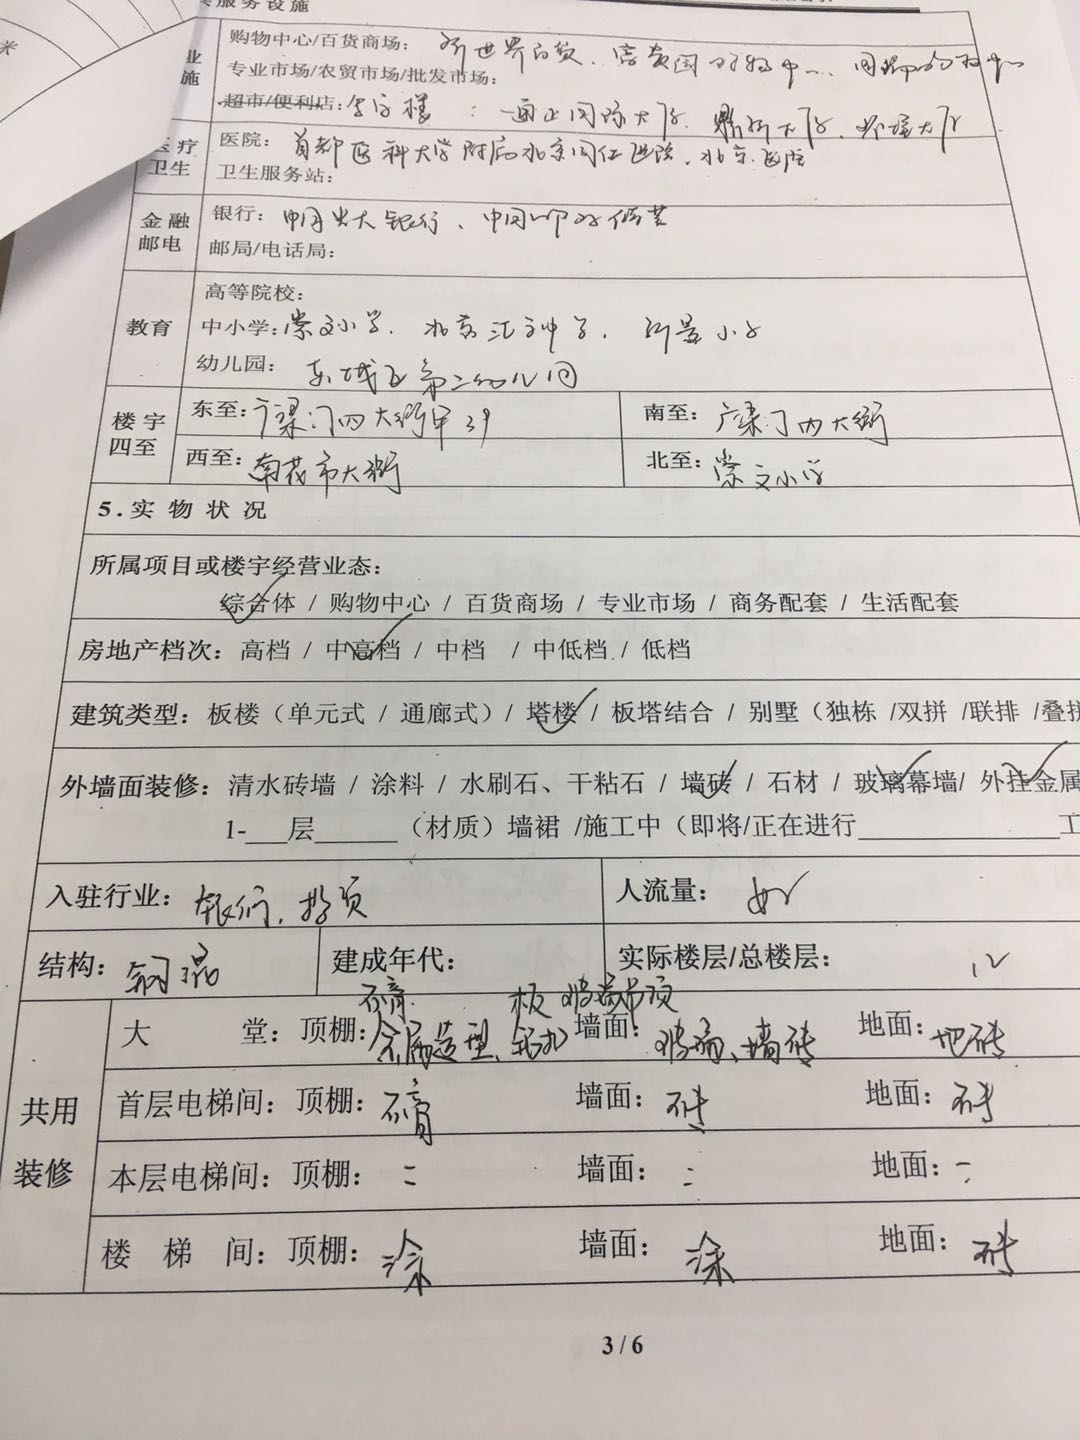 服务设施
米
业 购物中心/百货商场: 新世界百货、富贵园购物中心、国瑞购物中心
施 专业市场/农贸市场/批发市场:
超市/便利店: 写字楼: 通正国际大厦、鼎新大厦、环境大厦
医疗 医院: 首都医科大学附属北京同仁医院、北京医院
卫生 卫生服务站:
金融 银行: 中国光大银行、中国邮政储蓄
邮电 邮局/电话局:
高等院校:
教育 中小学: 崇文小学、北京汇文中学、新景小学
幼儿园: 东城区第二幼儿园
楼宇 东至: 广渠门内大街甲39 南至: 广渠门内大街
四至 西至: 南花市大街 北至: 崇文小学
5.实物状况
所属项目或楼宇经营业态:
综合体 / 购物中心 / 百货商场 / 专业市场 / 商务配套 / 生活配套
房地产档次: 高档 / 中高档 / 中档 / 中低档 / 低档
建筑类型: 板楼（单元式 / 通廊式）/ 塔楼 / 板塔结合 / 别墅（独栋 /双拼 /联排 /叠拼
外墙面装修: 清水砖墙 / 涂料 / 水刷石、干粘石 / 墙砖 / 石材 / 玻璃幕墙/ 外挂金属
1-___层______（材质）墙裙 /施工中（即将/正在进行______________工
入驻行业: 银行、 人流量:
结构: 钢混 建成年代: 实际楼层/总楼层: 12
石膏 板 玻璃吊顶
大堂: 顶棚: 金属造型、铝扣 墙面: 玻璃、墙砖 地面: 地砖
共用 首层电梯间: 顶棚: 石膏 墙面: 砖 地面: 砖
装修 本层电梯间: 顶棚: 墙面: 地面:
楼梯间: 顶棚: 涂 墙面: 涂 地面: 砖
3 / 6